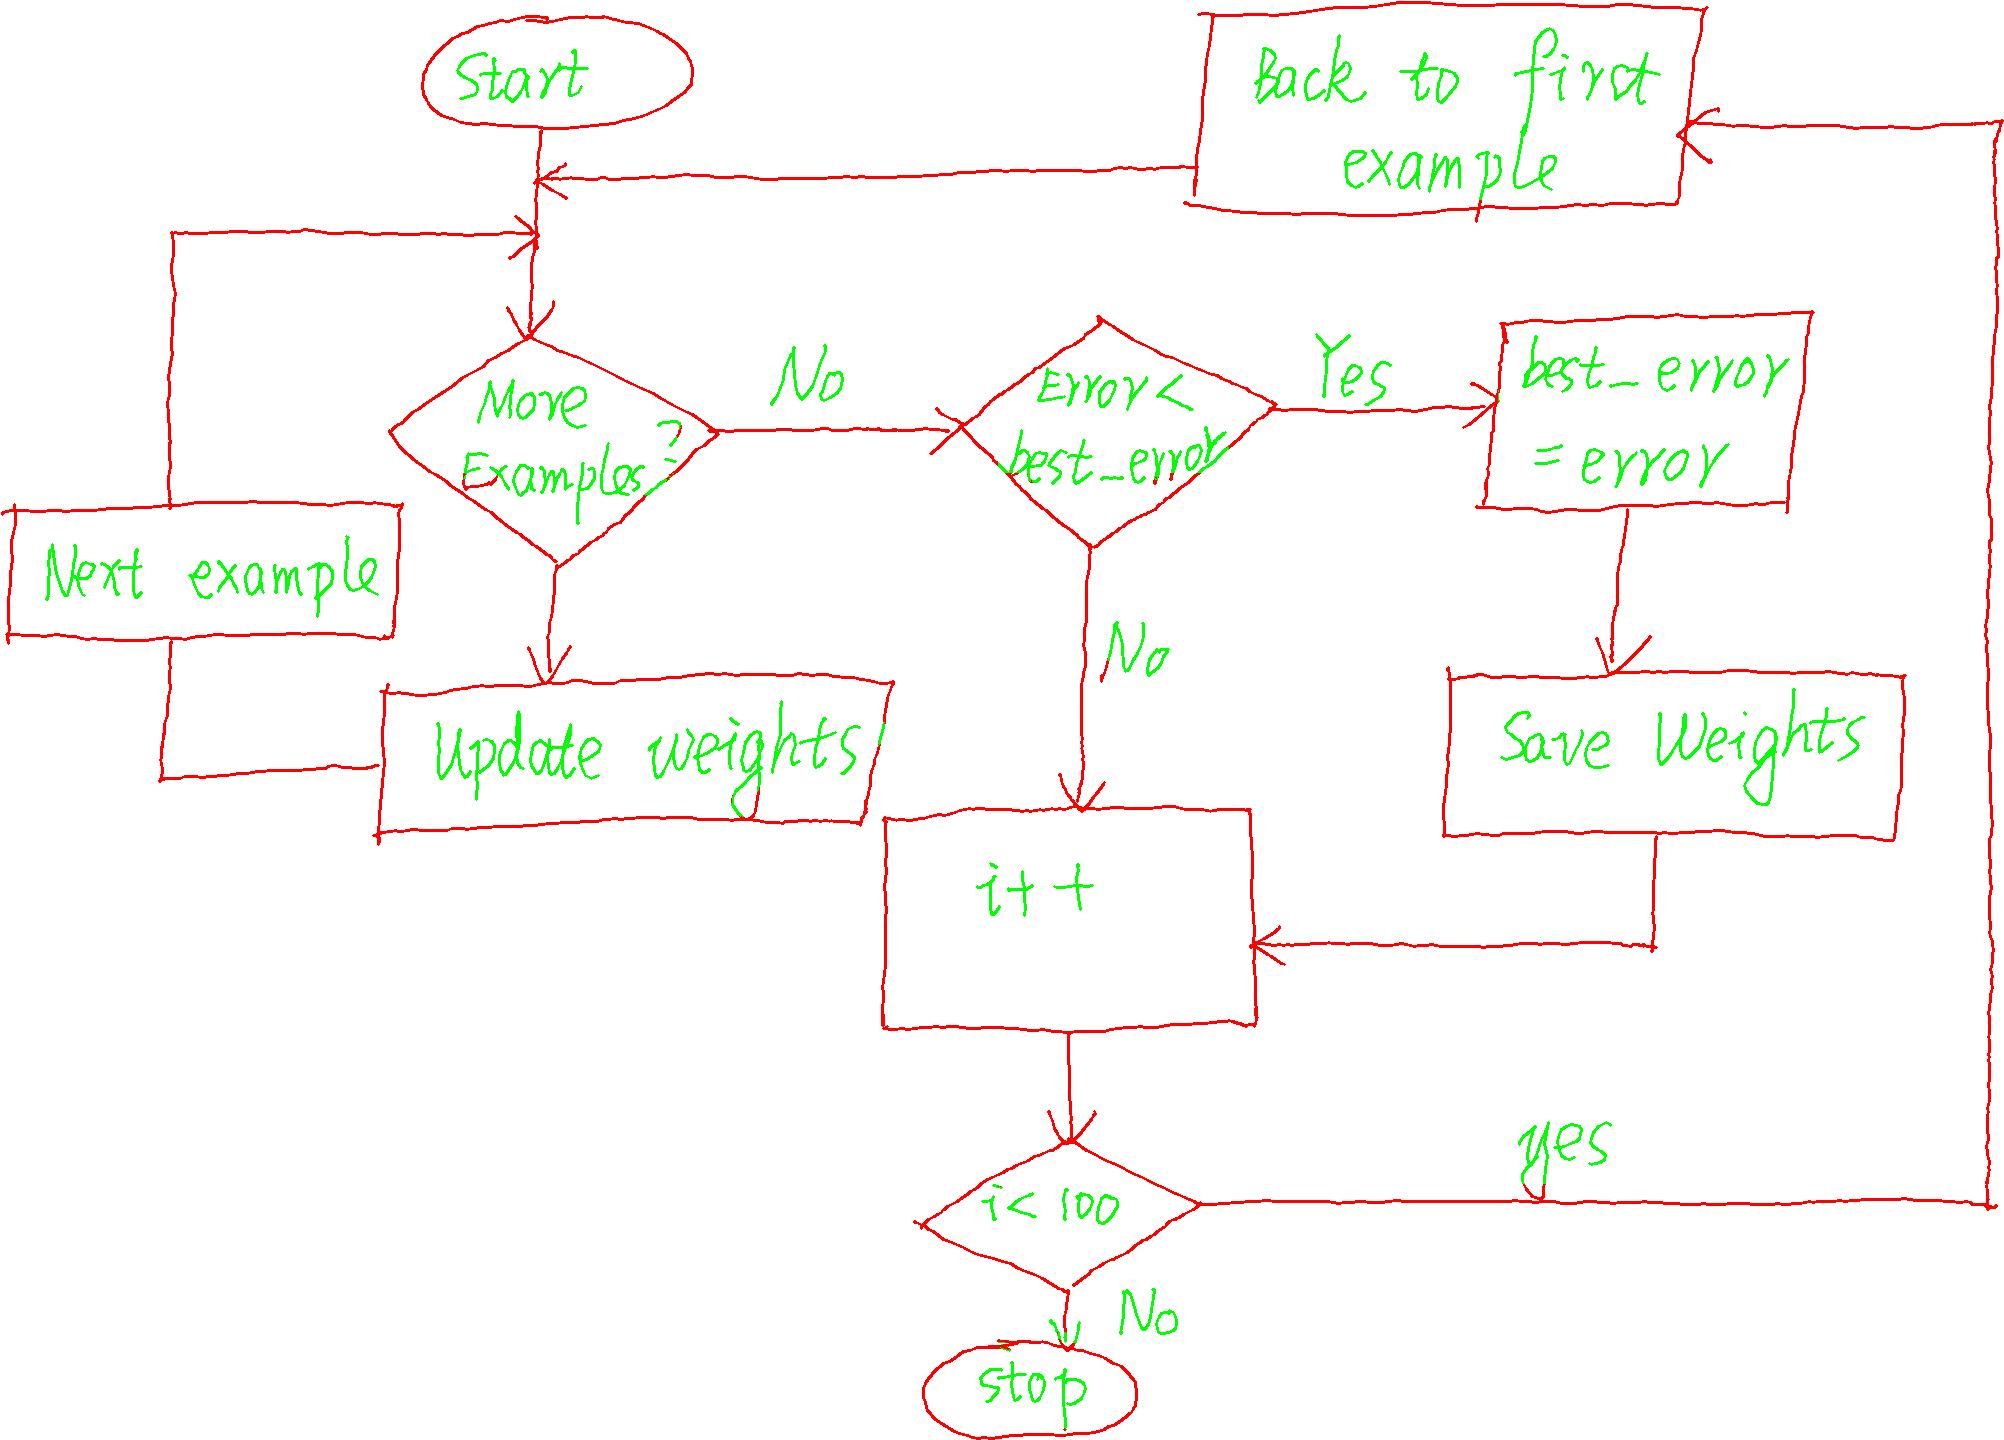 Start
Back to first
example
More
Examples?
No
Error<
best_error
Yes
best_error
= error
Next example
No
Update weights
Save Weights
i++
yes
i< 100
No
stop